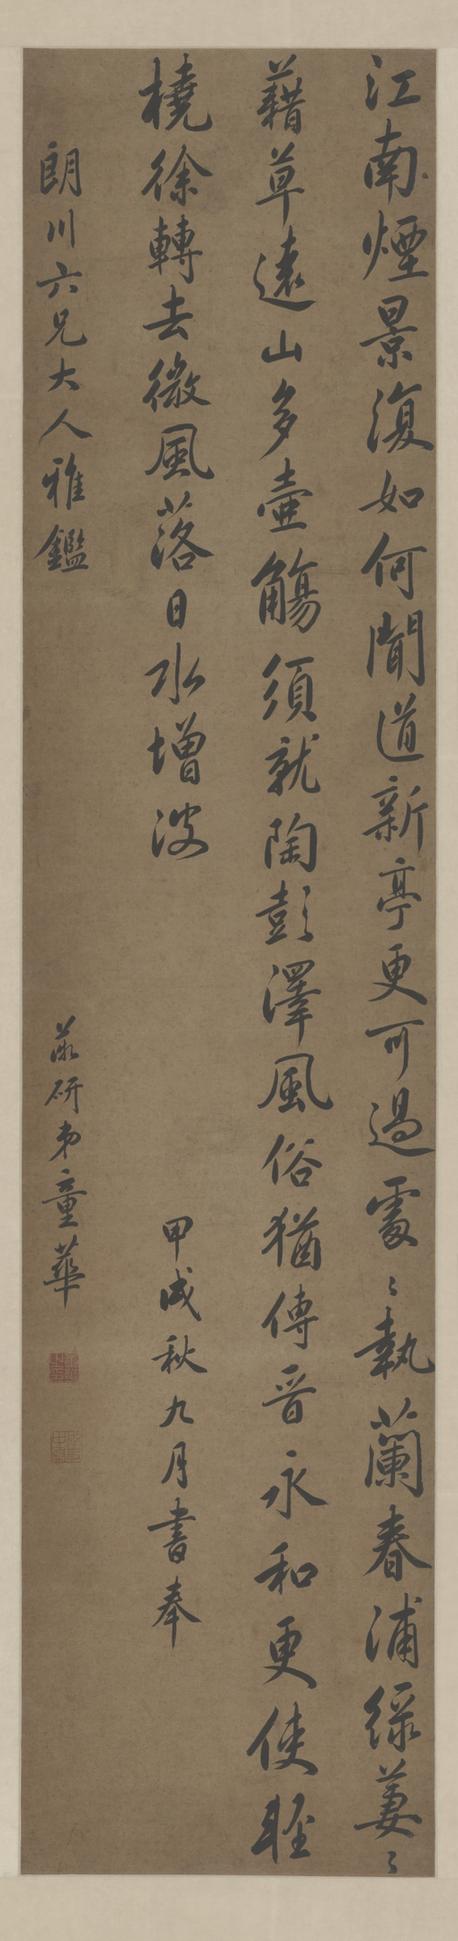 江南煙景復如何聞道新亭更可過處〻執蘭春浦綠萋〻
藉草遠山多壺觴須就陶彭澤風俗猶傳晉永和更使輕
橈徐轉去微風落日水增波
甲戌秋九月書奉
朗川六兄大人雅鑑
薇研弟童華